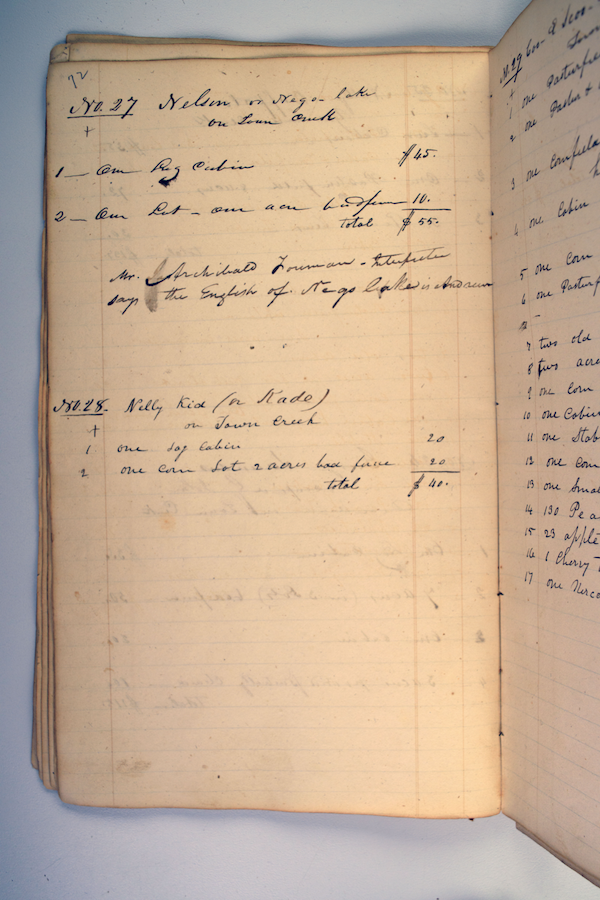 72
No. 27 Nelson or Nego- lake
on Town Creek
+
1 — One Log Cabin $45.
2 — One Lot - One acre badfence 10.
total $55.
Mr. Archibald Foreman - Interpreter
says the English of Nego lake is Andrew
No. 28- Nelly Kid (or Kade)
+ on Town Creek
1 one Log Cabin 20
2 one corn Lot 2 acres bad fence 20
total $40.
No. 29
+
1 one Pasturfie
2 one Pastur &
3 one Cornfield
4 one Cabin
5 one Corn
6 one Pasturf
7 two old
8 two acre
9 one Corn
10 one Cabin
11 one Stab
12 one Corn
13 one Smal
14 130 Pea
15 23 apple
16 1 Cherry T
17 one